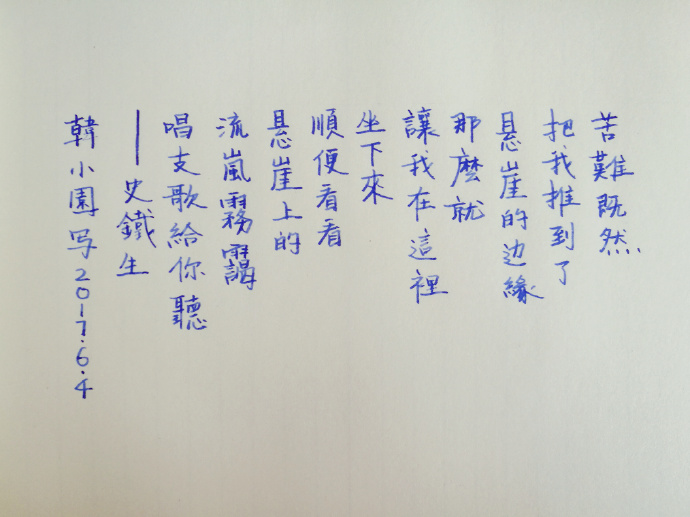 苦難既然
把我推到了
悬崖的边緣
那麼就
讓我在這裡
坐下來
順便看看
悬崖上的
流嵐霧靄
唱支歌給你聽
——史鐵生
韓小園写2017.6.4